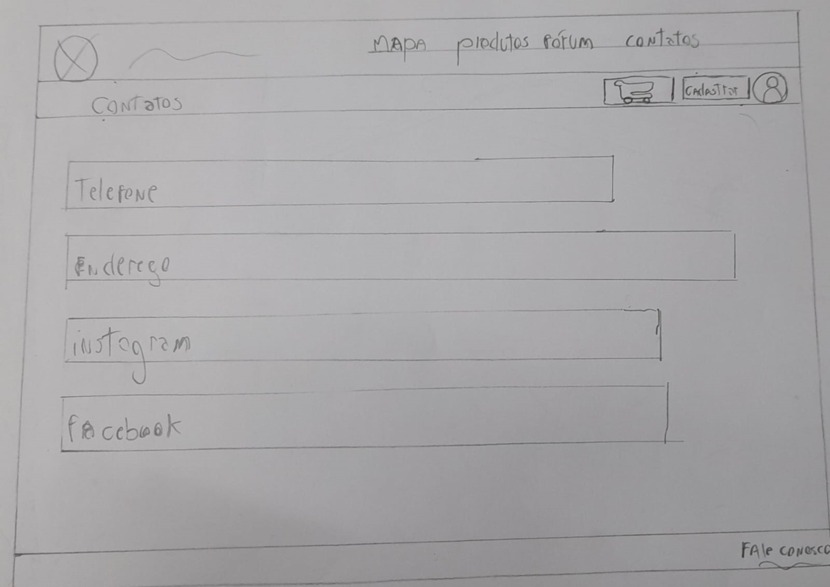 MAPA produtos Fórum contatos
cadastrar
CONTatos
Telefone
Endereço
instagram
facebook
FAle conosco